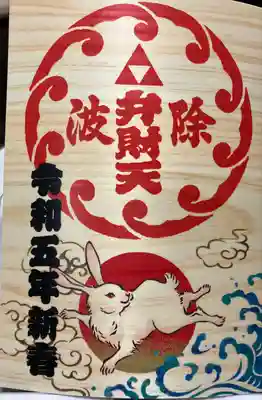 波除
弁財天
令和五年新春